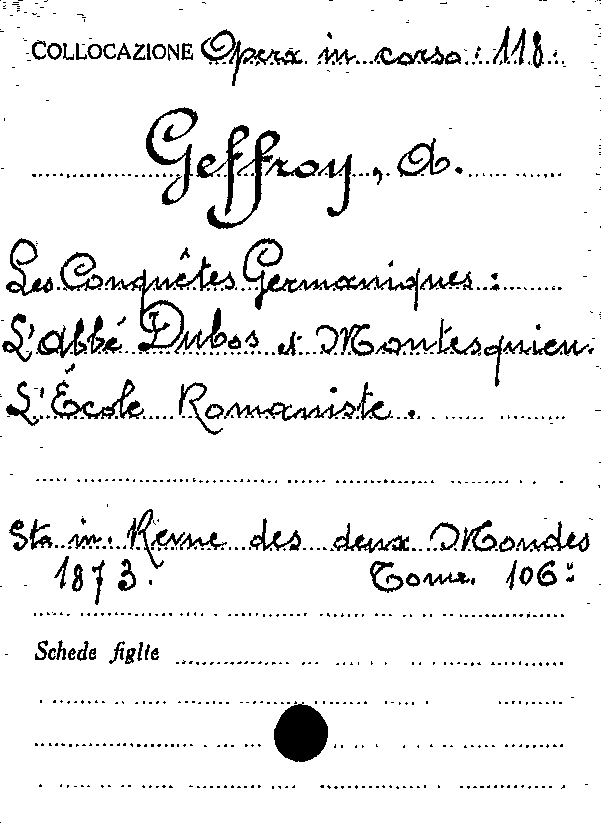 COLLOCAZIONE Opera in corso. 118.
Geffroy, A.
Les Conquêtes Germaniques:
L'abbé Dubos et Montesquieu.
L'École Romaniste.
Sta in. Revue des deux Mondes
1873. Tome. 106º
Schede figlie